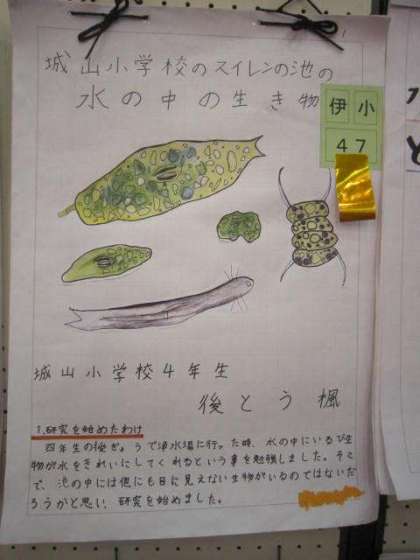 城山小学校のスイレンの池の
水の中の生き物
伊小
47
城山小学校4年生
後とう 楓
1.研究を始めたわけ
四年生の授ぎょうで浄水場に行った時、水の中にいるび生
物が水をきれいにしてくれるという事を勉強しました。そこ
で、池の中には他にも目に見えない生物がいるのではないだ
ろうかと思い、研究を始めました。